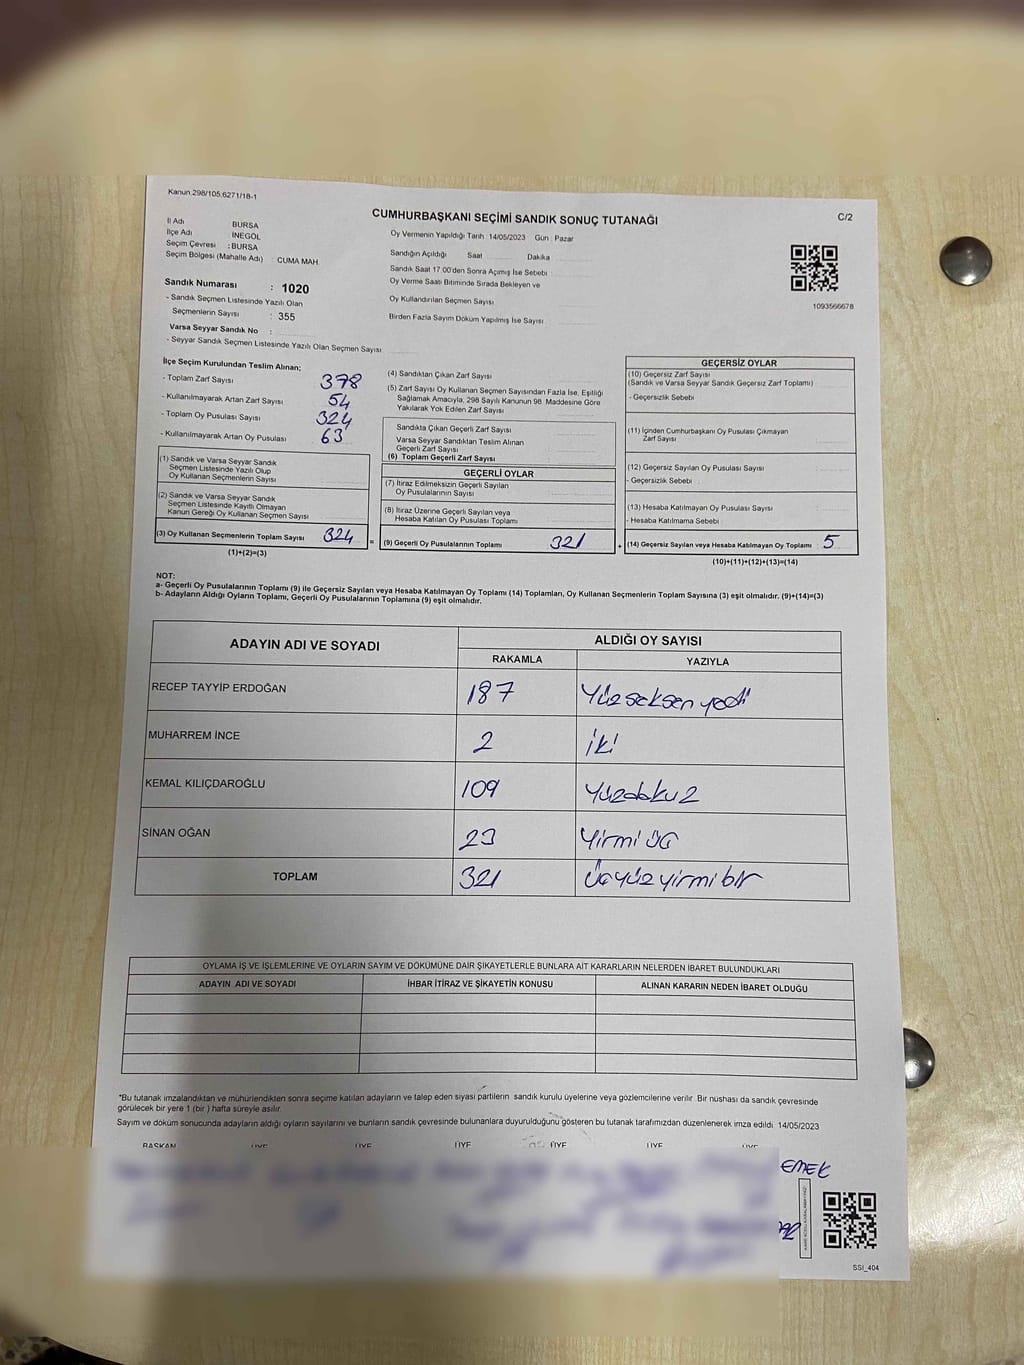 Kanun.298/105.6271/18-1
CUMHURBAŞKANI SEÇİMİ SANDIK SONUÇ TUTANAĞI
C/2
İl Adı BURSA
İlçe Adı İNEGÖL
Seçim Çevresi : BURSA
Seçim Bölgesi (Mahalle Adı) : CUMA MAH.
Oy Vermenin Yapıldığı Tarih :14/05/2023 Gün : Pazar
Sandığın Açıldığı Saat Dakika
Sandık Saat 17.00'den Sonra Açımış İse Sebebi :
Oy Verme Saati Bitiminde Sırada Bekleyen ve
Oy Kullandırılan Seçmen Sayısı
Birden Fazla Sayım Döküm Yapılmış İse Sayısı
1093566678
Sandık Numarası : 1020
- Sandık Seçmen Listesinde Yazılı Olan
Seçmenlerin Sayısı : 355
Varsa Seyyar Sandık No :
- Seyyar Sandık Seçmen Listesinde Yazılı Olan Seçmen Sayısı
İlçe Seçim Kurulundan Teslim Alınan;
- Toplam Zarf Sayısı 378
- Kullanılmayarak Artan Zarf Sayısı 54
- Toplam Oy Pusulası Sayısı 324
- Kullanılmayarak Artan Oy Pusulası 63
(1) Sandık ve Varsa Seyyar Sandık
Seçmen Listesinde Yazılı Olup
Oy Kullanan Seçmenlerin Sayısı
(2) Sandık ve Varsa Seyyar Sandık
Seçmen Listesinde Kayıtlı Olmayan
Kanun Gereği Oy Kullanan Seçmen Sayısı
(3) Oy Kullanan Seçmenlerin Toplam Sayısı 324
(1)+(2)=(3)
=
(4) Sandıktan Çıkan Zarf Sayısı
(5) Zarf Sayısı Oy Kullanan Seçmen Sayısından Fazla İse, Eşitliği
Sağlamak Amacıyla, 298 Sayılı Kanunun 98. Maddesine Göre
Yakılarak Yok Edilen Zarf Sayısı
Sandıkta Çıkan Geçerli Zarf Sayısı
Varsa Seyyar Sandıktan Teslim Alınan
Geçerli Zarf Sayısı
(6) Toplam Geçerli Zarf Sayısı
GEÇERLİ OYLAR
(7) İtiraz Edilmeksizin Geçerli Sayılan
Oy Pusulalarının Sayısı
(8) İtiraz Üzerine Geçerli Sayılan veya
Hesaba Katılan Oy Pusulası Toplamı
(9) Geçerli Oy Pusulalarının Toplamı 321
+
GEÇERSİZ OYLAR
(10) Geçersiz Zarf Sayısı
(Sandık ve Varsa Seyyar Sandık Geçersiz Zarf Toplamı)
- Geçersizlik Sebebi
(11) İçinden Cumhurbaşkanı Oy Pusulası Çıkmayan
Zarf Sayısı
(12) Geçersiz Sayılan Oy Pusulası Sayısı
- Geçersizlik Sebebi :
(13) Hesaba Katılmayan Oy Pusulası Sayısı
- Hesaba Katılmama Sebebi :
(14) Geçersiz Sayılan veya Hesaba Katılmayan Oy Toplamı 5
(10)+(11)+(12)+(13)=(14)
NOT:
a- Geçerli Oy Pusulalarının Toplamı (9) ile Geçersiz Sayılan veya Hesaba Katılmayan Oy Toplamı (14) Toplamları, Oy Kullanan Seçmenlerin Toplam Sayısına (3) eşit olmalıdır. (9)+(14)=(3)
b- Adayların Aldığı Oyların Toplamı, Geçerli Oy Pusulalarının Toplamına (9) eşit olmalıdır.
ADAYIN ADI VE SOYADI ALDIĞI OY SAYISI
RAKAMLA YAZIYLA
RECEP TAYYİP ERDOĞAN 187 Yüz seksen yedi
MUHARREM İNCE 2 iki
KEMAL KILIÇDAROĞLU 109 Yüzdokuz
SİNAN OĞAN 23 Yirmi üç
TOPLAM 321 Üçyüz yirmi bir
OYLAMA İŞ VE İŞLEMLERİNE VE OYLARIN SAYIM VE DÖKÜMÜNE DAİR ŞİKAYETLERLE BUNLARA AİT KARARLARIN NELERDEN İBARET BULUNDUKLARI
ADAYIN ADI VE SOYADI İHBAR İTİRAZ VE ŞİKAYETİN KONUSU ALINAN KARARIN NEDEN İBARET OLDUĞU
*Bu tutanak imzalandıktan ve mühürlendikten sonra seçime katılan adayların ve talep eden siyasi partilerin sandık kurulu üyelerine veya gözlemcilerine verilir. Bir nüshası da sandık çevresinde
görülecek bir yere 1 (bir ) hafta süreyle asılır.
Sayım ve döküm sonucunda adayların aldığı oyların sayılarını ve bunların sandık çevresinde bulunanlara duyurulduğunu gösteren bu tutanak tarafımızdan düzenlenerek imza edildi. 14/05/2023
BAŞKAN ÜYE ÜYE ÜYE ÜYE ÜYE ÜYE
EMEK
SSI_404